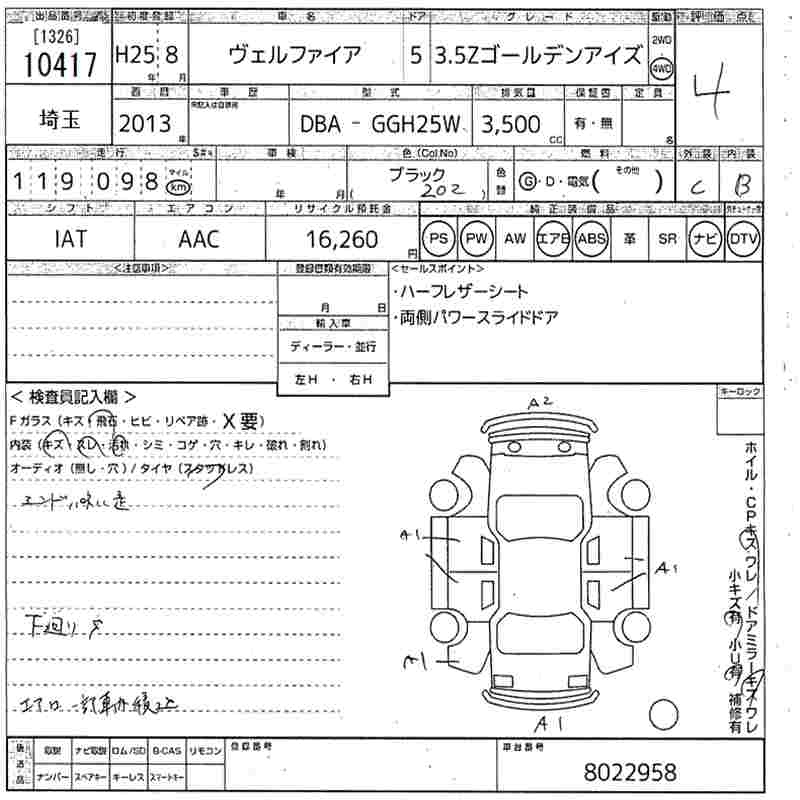 出品番号 初度登録 車名 ドア グレード 駆動 評価点
[1326]
10417 H25年 8月 ヴェルファイア 5 3.5Zゴールデンアイズ 2WD 4WD 4
埼玉 西暦 車歴 型式 排気量 保証書 定員
2013年 DBA - GGH25W 3,500cc 有・無 名
走行 車検 色(Col No) 燃料 外装 内装
119098 マイル km 年 月 ブラック 202 色替 G・D・電気( その他 ) C B
シフト エアコン リサイクル預託金 純正装備品
IAT AAC 16,260円 PS PW AW エアB ABS 革 SR ナビ DTV
<注意事項> 登録書類有効期限 <セールスポイント>
月 日 ・ハーフレザーシート
輸入車 ・両側パワースライドドア
ディーラー・並行
左H・右H
<検査員記入欄> キーロック
Fガラス(キズ・飛石・ヒビ・リペア跡・X要)
内装(キズ・スレ・汚れ・シミ・コゲ・穴・キレ・破れ・割れ)
オーディオ(無し・穴)/タイヤ(スタッドレス)
下廻りサ
A2
A1
A1
A1
A1
ホイル・CPキズワレ/ドアミラーキズ/ワレ
小キズ有/小U有/補修有
後送品 取説 ナビ取説 ロム/SD B-CAS リモコン 登録番号 車台番号
ナンバー スペアキー キーレス スマートキー 8022958